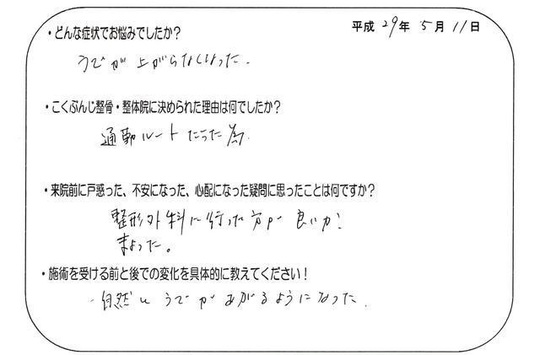 平成 29年 5月 11日
・どんな症状でお悩みでしたか？
うでが上がらなくなった.
・こくぶんじ整骨・整体院に決められた理由は何でしたか？
通勤ルートだった為.
・来院前に戸惑った、不安になった、心配になった疑問に思ったことは何ですか？
整形外科に行った方が良いか?
まよった。
・施術を受ける前と後での変化を具体的に教えてください！
自然とうでがあがるようになった.